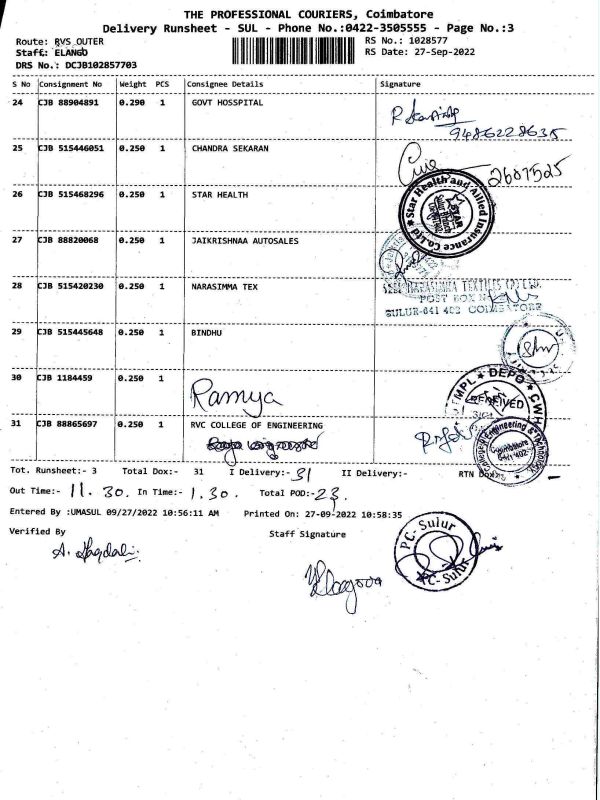 THE PROFESSIONAL COURIERS, Coimbatore
Delivery Runsheet - SUL - Phone No.:0422-3505555 - Page No.:3
Route: RVS OUTER RS No.: 1028577
Staff: ELANGO RS Date: 27-Sep-2022
DRS No.: DCJB102857703
S No Consignment No Weight PCS Consignee Details Signature
24 CJB 88904891 0.290 1 GOVT HOSSPITAL
9486228635
25 CJB 515446051 0.250 1 CHANDRA SEKARAN
2607525
26 CJB 515468296 0.250 1 STAR HEALTH
Star Health and Allied Insurance Co.Ltd
27 CJB 88820068 0.250 1 JAIKRISHNAA AUTOSALES
28 CJB 515420230 0.250 1 NARASIMMA TEX
NARASIMHA TEXTILES (P) LTD.
POST BOX N
SULUR-641 402 COIMBATORE
29 CJB 515445648 0.250 1 BINDHU
30 CJB 1184459 0.250 1 Ramya
MPL ★ DEPO ★ CWH
RECEIVED
31 CJB 88865697 0.250 1 RVC COLLEGE OF ENGINEERING
Engineering & Technology
Coimbatore
641 402
Tot. Runsheet:- 3 Total Dox:- 31 I Delivery:- 31 II Delivery:- RTN Dox:- -
Out Time:- 11.30. In Time:- 1.30. Total POD:- 23.
Entered By :UMASUL 09/27/2022 10:56:11 AM Printed On: 27-09-2022 10:58:35
Verified By Staff Signature
PC-Sulur
PC-Sulur